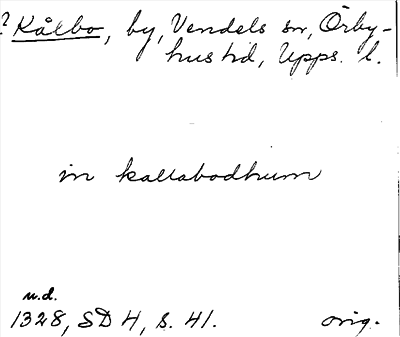 ? Kålbo, by, Vendels sn, Örby-
hus hd, Upps. l.
in kallabodhum
u.d.
1328, SD 4, s. 41. orig.